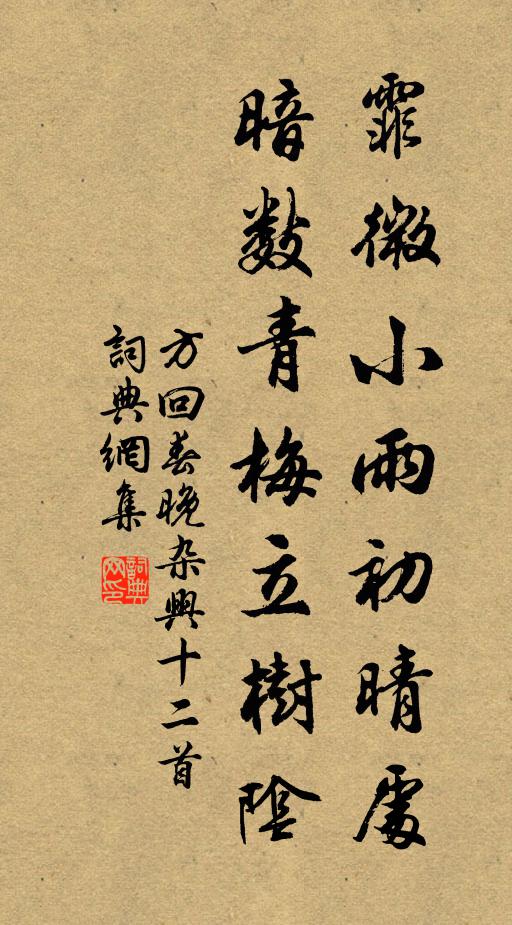 霏微小雨初晴處
暗數青梅立樹陰
方回春晚杂興十二首
詞典網集
詞典网印